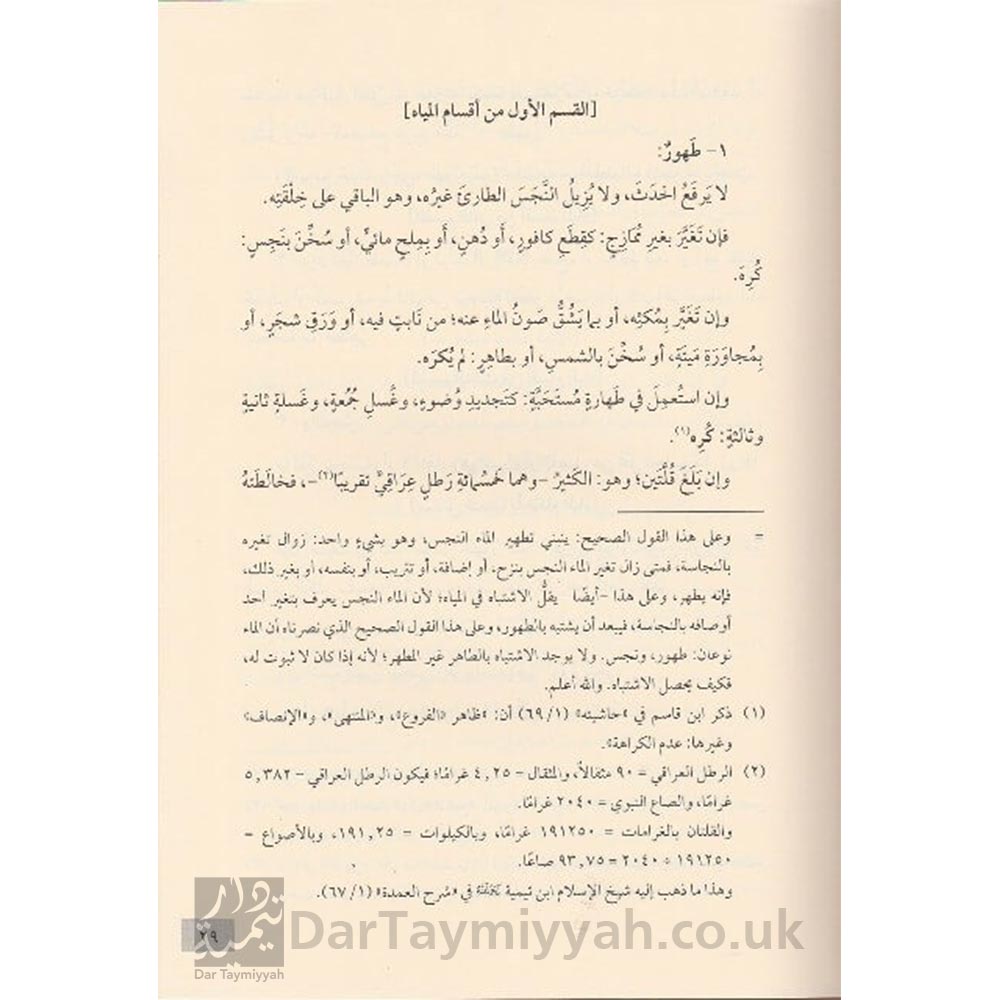 [القسم الأول من أقسام المياه]
١- طَهورٌ:
لا يَرفَعُ الحَدَثَ، ولا يُزيلُ النَّجَسَ الطارئَ غيرُه، وهو الباقي على خِلْقَتِه.
فإن تَغَيَّرَ بغيرِ مُمَازِجٍ: كقِطَعِ كافورٍ، أَو دُهنٍ، أَو بِمِلحٍ مائيٍّ، أو سُخِّنَ بنَجِسٍ:
كُرِهَ.
وإن تَغَيَّر بِمُكثِه، أو بما يَشُقُّ صَونُ الماءِ عنه؛ من نَابتٍ فيه، أو وَرَقِ شجَرٍ، أو
بِمُجاوَرَةِ مَيتَةٍ، أو سُخِّنَ بالشمسِ، أو بطاهِرٍ: لم يُكرَه.
وإن استُعمِلَ في طَهارةٍ مُستَحَبَّةٍ: كتَجديدِ وُضوءٍ، وغُسلِ جُمُعةٍ، وغَسلةٍ ثانيةٍ
وثالثةٍ: كُرِه(١).
وإن بَلَغَ قُلَّتَين؛ وهو: الكَثيرُ -وهما خَمسُمائةِ رَطلٍ عِرَاقيٍّ تقريبًا(٢)-، فخالَطَتهُ
= وعلى هذا القول الصحيح: ينبني تطهير الماء النجس، وهو بشيءٍ واحد: زوال تغيره
بالنجاسة، فمتى زال تغير الماء النجس بنزح، أو إضافة، أو تتريب، أو بنفسه، أو بغير ذلك،
فإنه يطهر، وعلى هذا -أيضًا- يقلُّ الاشتباه في المياه؛ لأن الماء النجس يعرف بتغير احد
أوصافه بالنجاسة، فيبعد أن يشتبه بالطهور، وعلى هذا القول الصحيح الذي نصرناه أن الماء
نوعان: طهور، ونجس. ولا يوجد الاشتباه بالطاهر غير المطهر؛ لأنه إذا كان لا ثبوت له،
فكيف يحصل الاشتباه. والله أعلم.
(١) ذكر ابن قاسم في «حاشيته» (١/ ٦٩) أن: «ظاهر «الفروع»، و«المنتهى»، و«الإنصاف»
وغيرها: عدم الكراهة».
(٢) الرطل العراقي = ٩٠ مثقالاً، والمثقال = ٤,٢٥ غرامًا؛ فيكون الرطل العراقي = ٣٨٢,٥
غرامًا، والصاع النبوي = ٢٠٤٠ غرامًا.
والقلتان بالغرامات = ١٩١٢٥٠ غرامًا، وبالكيلوات = ١٩١,٢٥، وبالأصواع =
١٩١٢٥٠ ÷ ٢٠٤٠ = ٩٣,٧٥ صاعًا.
وهذا ما ذهب إليه شيخ الإسلام ابن تيمية رَحِمَهُ اللهُ في «شرح العمدة» (١/ ٦٧).
٢٩
Dar Taymiyyah
DarTaymiyyah.co.uk